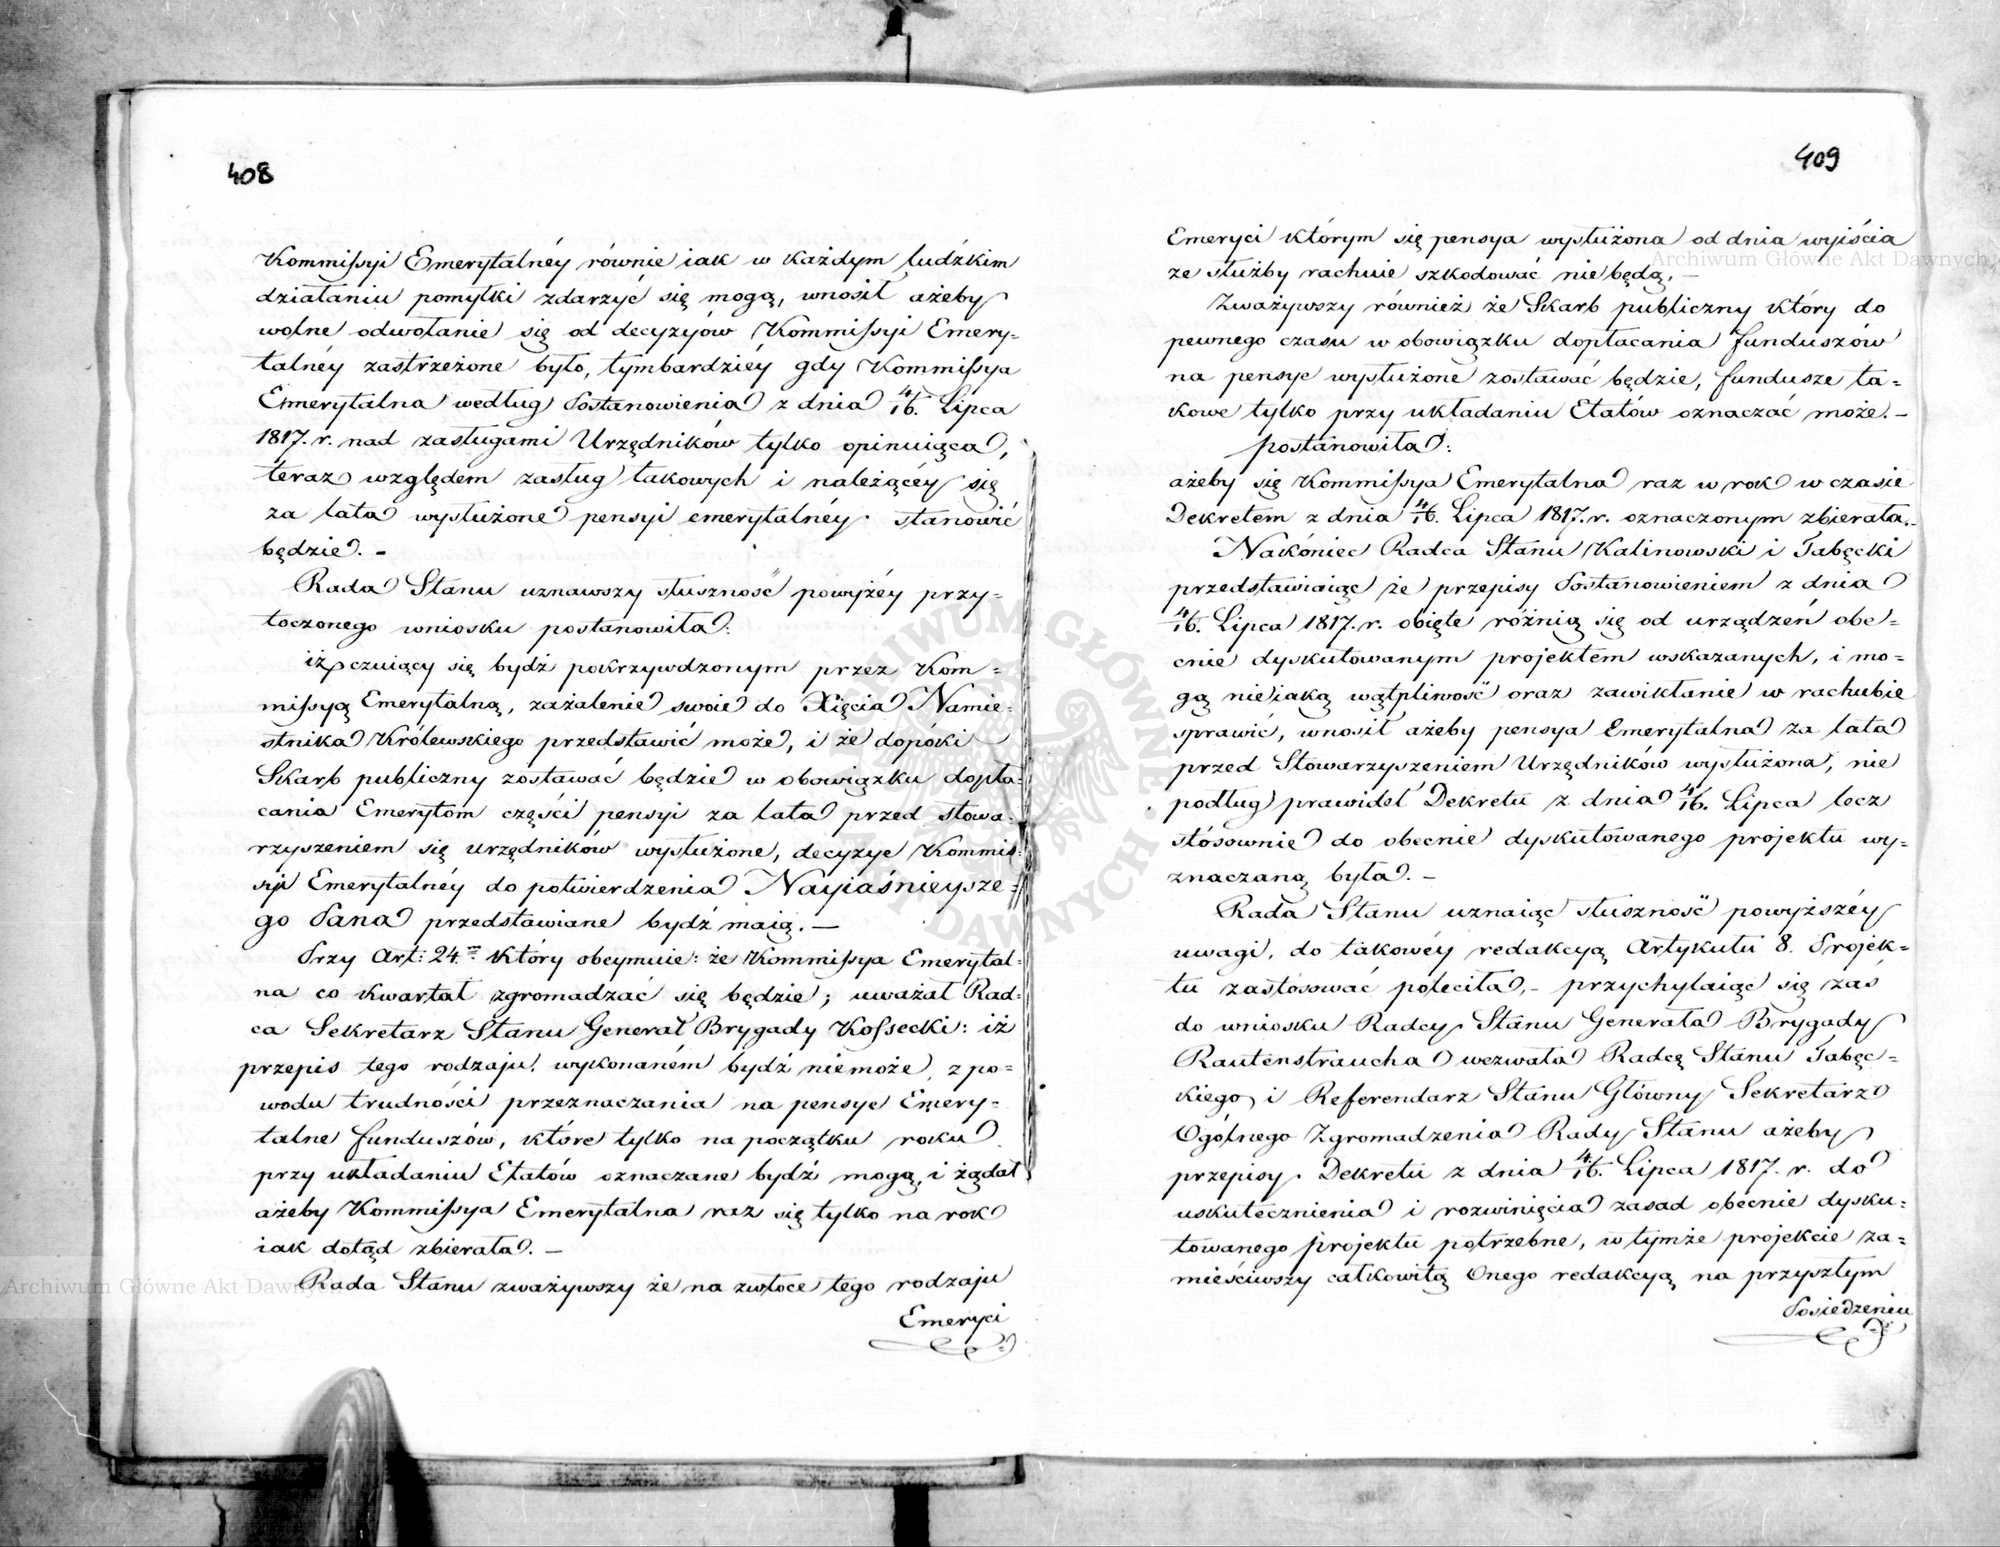 408
Kommissyi Emerytalnéy równie iak w każdym ludzkim
działaniu pomyłki zdarzyć się mogą, wnosił ażeby
wolne odwołanie się od decyzyów Kommissyi Emery-
talnéy zastrzeżone było, tymbardziéy gdy Kommissya
Emerytalna według Postanowienia z dnia 4/16. Lipca
1817. r. nad zasługami Urzędników tylko opiniuiąca,
teraz względem zasług takowych i należącéy się
za lata wysłużone pensyi emerytalnéy stanowić
będzie. -
Rada Stanu uznawszy słuszność powyżéy przy-
toczonego wniosku postanowiła:
iż czuiący się bydź pokrzywdzonym przez Kom-
missyą Emerytalną, zażalenie swoie do Xięcia Namie-
stnika Królewskiego przedstawić może, i że dopóki
Skarb publiczny zostawać będzie w obowiązku dopła-
cania Emerytom części pensyi za lata przed stowa-
rzyszeniem się urzędników wysłużone, decyzye Kommis-
syi Emerytalnéy do potwierdzenia Nayiaśnieysze-
go Pana przedstawiane bydź maią. —
Przy Art: 24. który obeymuie: że Kommissya Emerytal-
na co kwartał zgromadzać się będzie; uważał Rad-
ca Sekretarz Stanu Generał Brygady Kossecki: iż
przepis tego rodzaju, wykonaném bydź niemoże, z po-
wodu trudności przeznaczania na pensye Emery-
talne funduszów, które tylko na początku roku
przy układaniu Etatów oznaczane bydź mogą, i żądał
ażeby Kommissya Emerytalna raz się tylko na rok
iak dotąd zbierała. —
Rada Stanu zważywszy że na zwłoce tego rodzaju
Emeryci
409
Emeryci którym się pensya wysłużona od dnia wyiścia
ze służby rachuie szkodować nie będą, -
Zważywszy również że Skarb publiczny który do
pewnego czasu w obowiązku dopłacania funduszów
na pensye wysłużone zostawać będzie, fundusze ta-
kowe tylko przy układaniu Etatów oznaczać może. -
postanowiła:
ażeby się Kommissya Emerytalna raz w rok w czasie
Dekretem z dnia 4/16. Lipca 1817. r. oznaczonym zbierała. -
Nakóniec Radca Stanu Kalinowski i Tabęcki
przedstawiaiąc że przepisy Postanowieniem z dnia
4/16. Lipca 1817. r. obięte różnią się od urządzeń obe-
cnie dyskutowanym projektem wskazanych, i mo-
gą nieiaką wątpliwość oraz zawikłanie w rachubie
sprawić, wnosił ażeby pensya Emerytalna za lata
przed Stowarzyszeniem Urzędników wysłużona, nie
podług prawideł Dekretu z dnia 4/16. Lipca lecz
stósownie do obecnie dyskutowanego projektu wy-
znaczaną była. -
Rada Stanu uznaiąc słuszność powyższéy
uwagi, do takowéy redakcyą Artykułu 8. Projek-
tu zastósować poleciła, - przychylaiąc się zaś
do wniosku Radcy Stanu Generała Brygady
Rautenstraucha wezwała Radcę Stanu Tabęc-
kiego, i Referendarz Stanu Główny Sekretarz
Ogólnego Zgromadzenia Rady Stanu ażeby
przepisy Dekretu z dnia 4/16. Lipca 1817. r. do
uskutecznienia i rozwinięcia zasad obecnie dysku-
towanego projektu potrzebne, w tymże projekcie za-
mieściwszy całkowitą Onego redakcyą na przyszłym
Posiedzeniu
Archiwum Główne Akt Dawnych
Archiwum Główne Akt Dawnych
ARCHIWUM GŁÓWNE AKT DAWNYCH